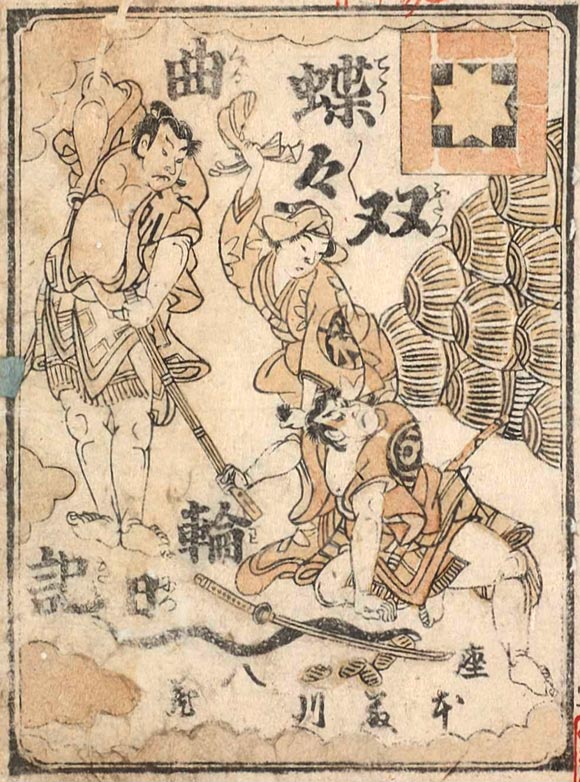 双蝶々曲輪日記
ふたつ
てう
座本
川八